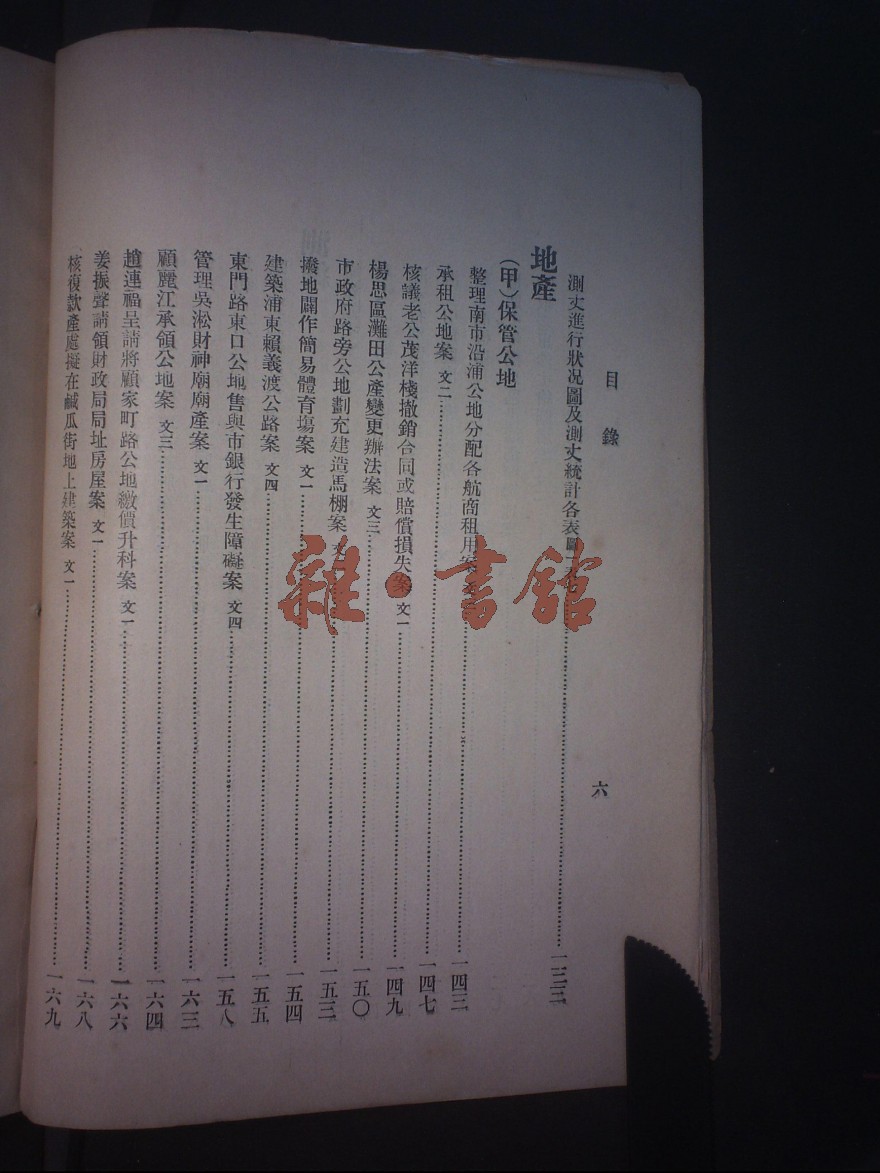 目錄
六
測丈進行狀况圖及測丈統計各表圖一三三
地產
（甲）保管公地
整理南市沿浦公地分配各航商租用案一四三
承租公地案 文二一四七
核議老公茂洋棧撤銷合同或賠償損失案 文一一四九
楊思區灘田公產變更辦法案 文三一五〇
市政府路旁公地劃充建造馬棚案一五三
撥地闢作簡易體育塲案 文一一五四
建築浦東賴義渡公路案 文四一五五
東門路東口公地售與市銀行發生障礙案 文四一五八
管理吳淞財神廟廟產案 文一一六三
顧麗江承領公地案 文三一六四
趙連福呈請將顧家町路公地繳價升科案 文一一六六
姜振聲請領財政局局址房屋案 文一一六八
核復款產處擬在鹹瓜街地上建築案 文一一六九
雜·書館